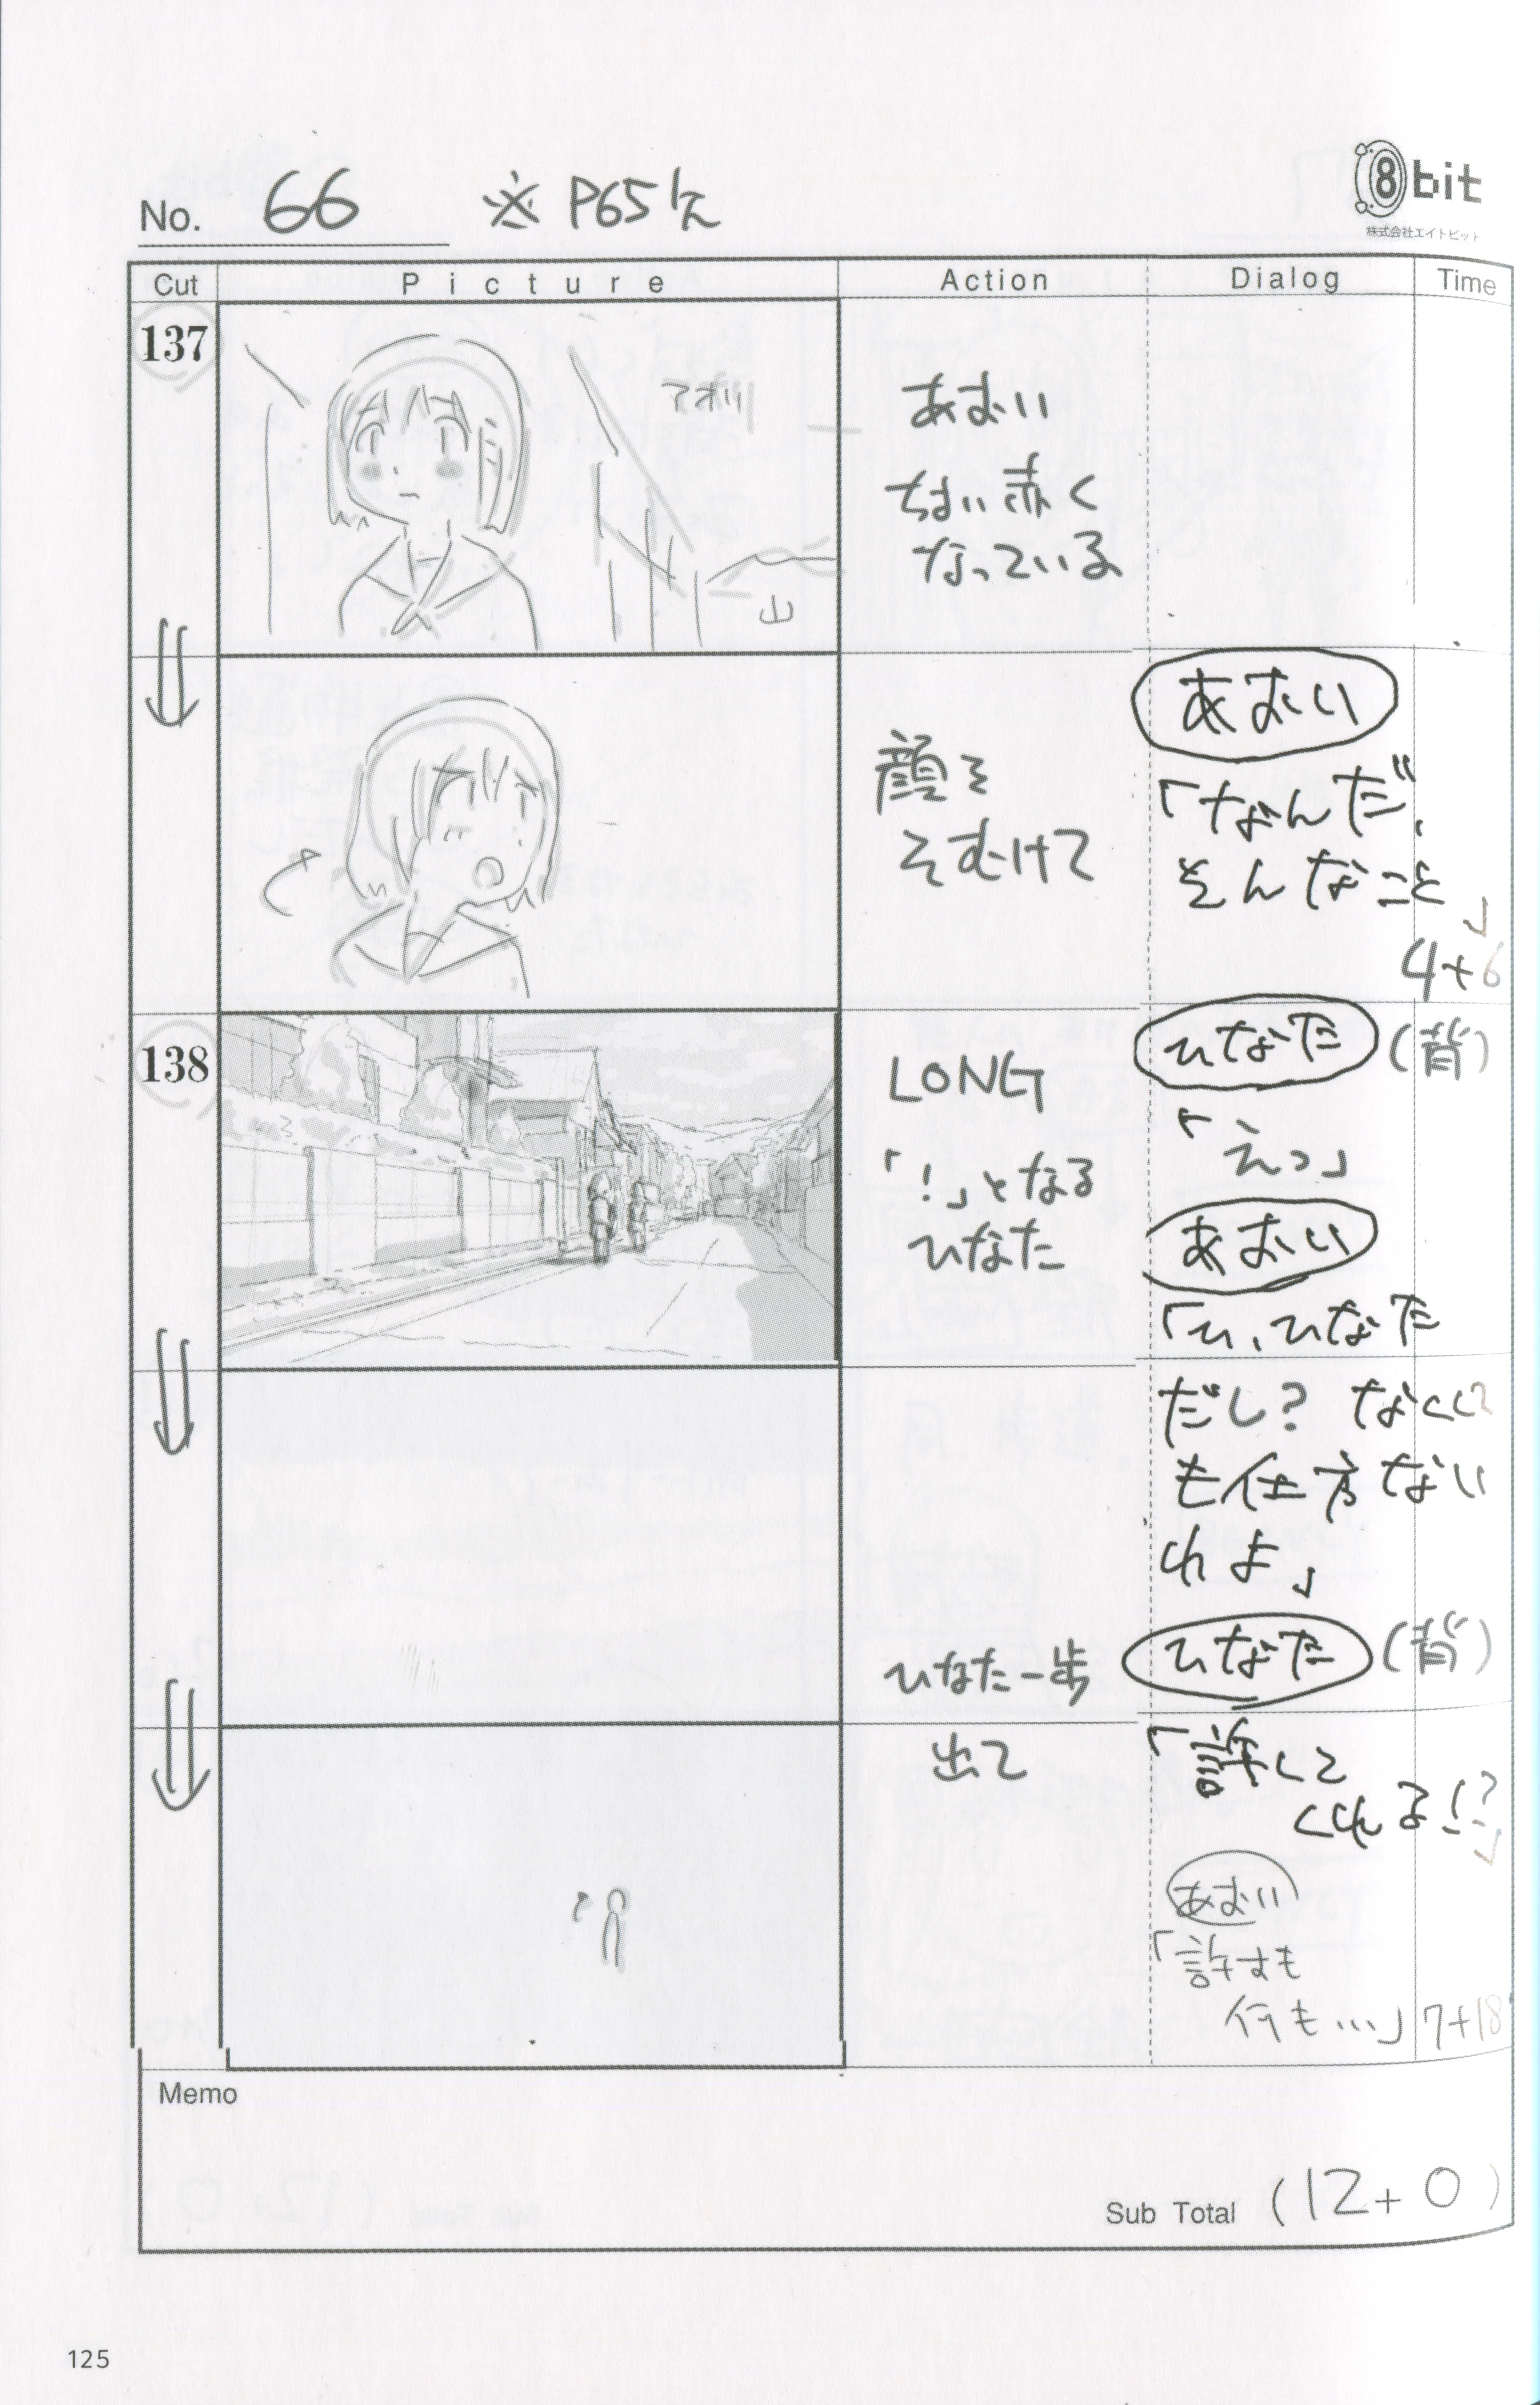 No. 66 ※ P65欠
8bit
株式会社エイトビット
Cut Picture Action Dialog Time
137
アオリ
山
あおい
ちょい赤く
なっている
顔を
そむけて
あおい
「なんだ、
そんなこと」
4+6
138
LONG
「！」となる
ひなた
ひなた (背)
「えっ」
あおい
「ひ、ひなた
だし？ なくして
も仕方ない
わよ」
ひなた一歩
出て
ひなた (背)
「許して
くれる！？」
あおい
「許すも
何も…」
7+18
Memo
Sub Total (12+0)
125